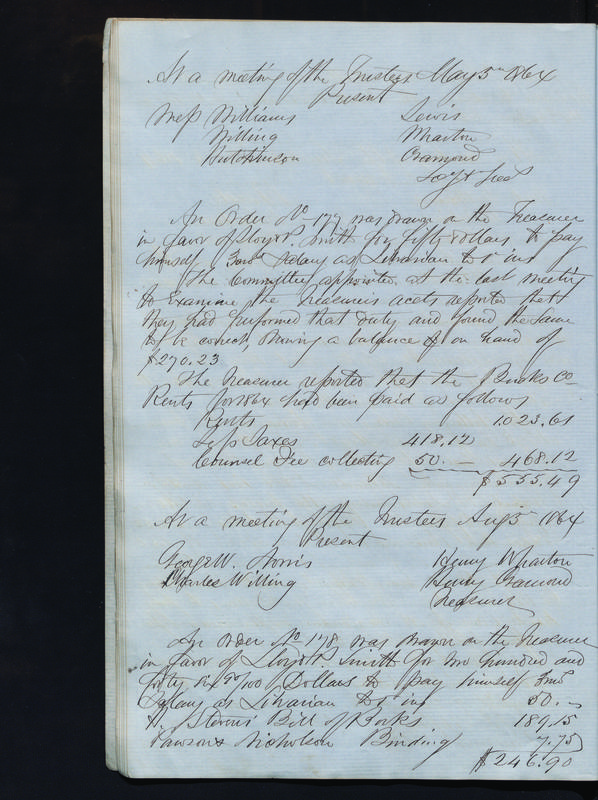 At a meeting of the Trustees May 5th 1864
Present
Mess Williams Lewis
Willing Wharton
Hutchinson Cramond
Secy & Treas
An Order No 177 was drawn on the Treasurer
in favor of Lloyd P. Smith for fifty dollars to pay
himself 3 mos Salary as Librarian to 5 ins
The Committee appointed at the last meeting
to Examine the Treasurers accts reported that
they had performed that duty and found the same
to be correct, showing a balance on hand of
$270.23
The Treasurer reported that the Bucks Co
Rents for 1864 had been paid as follows
Rents 1.023.61
Less Taxes 418.12
Counsel Fee collecting 50.— 468.12
$555.49
At a meeting of the Trustees Aug 5 1864
Present
George W. Norris Henry Wharton
Charles Willing Henry Cramond
Treasurer
An order No 178 was drawn on the Treasurer
in favor of Lloyd P. Smith for two hundred and
forty six 90/100 Dollars to pay himself 3 mos
Salary as Librarian to 5 ins 50.—
H. Stevens' Bill of Books 189.15
Pawson & Nicholson Binding 7.75
$246.90